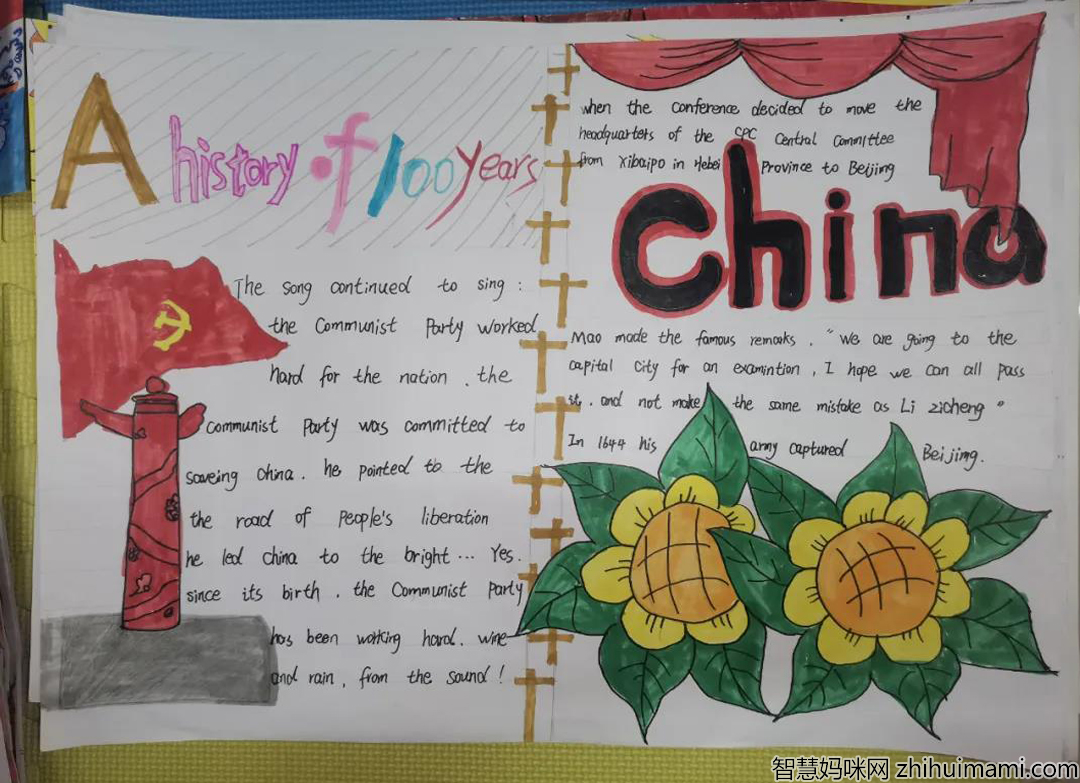 A history of 100 years
The song continued to sing :
the Communist Party worked
hard for the nation . the
Communist Party was committed to
saveing china . he pointed to the
the road of people's liberation
he led china to the bright ... Yes.
since its birth . the Communist Party
has been working hard. wine
and rain , from the sound !
when the conference decided to move the
headquarters of the CPC Central Committee
from Xibaipo in Hebei Province to Beijing
China
Mao made the famous remarks , “ We are going to the
capital City for an examintion , I hope we can all pass
it , and not make the same mistake as Li zicheng ”
In 1644 his army captured Beijing.
智慧妈咪网 zhihuimami.com